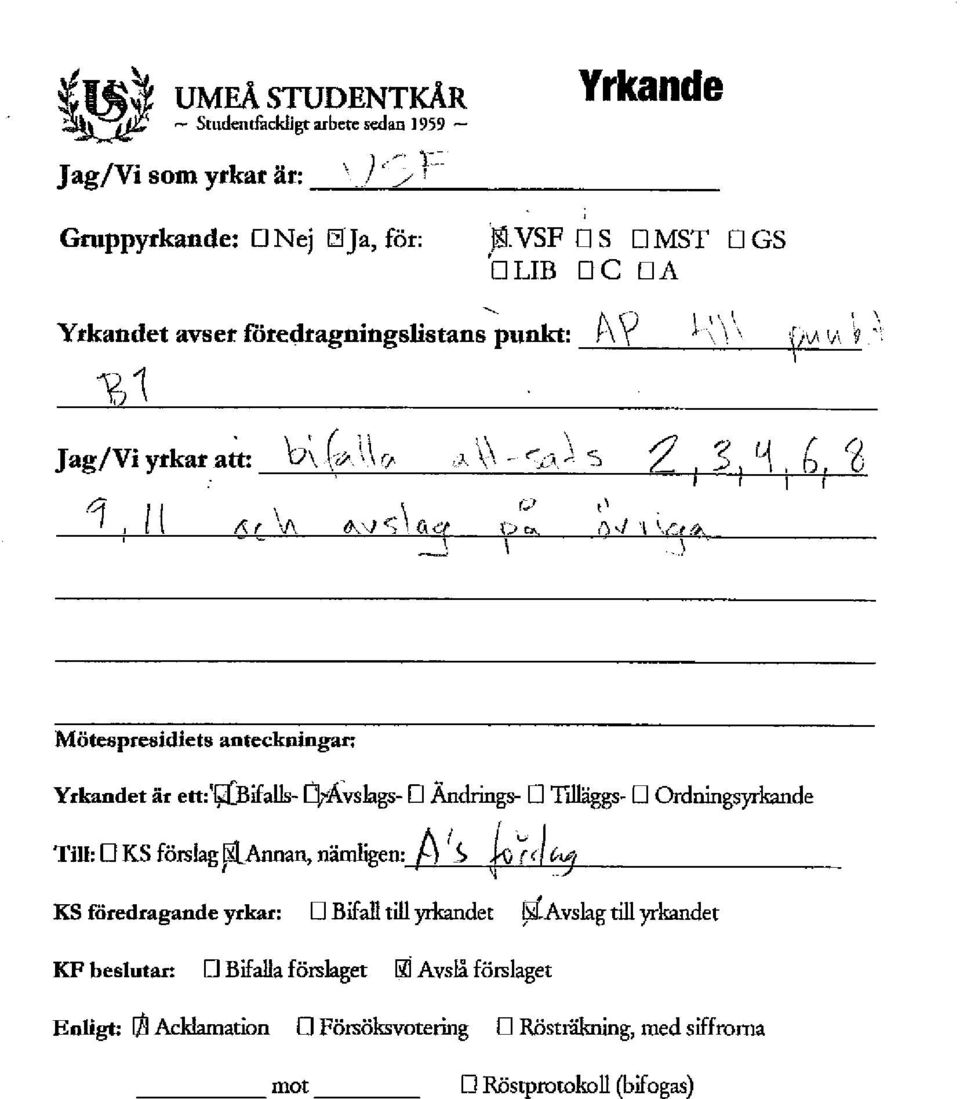 UMEÅ STUDENTKÅR
~ Studentfackligt arbete sedan 1959 ~
Yrkande
Jag/Vi som yrkar är: VSF
Gruppyrkande: ☐ Nej ☒ Ja, för: ☒ VSF ☐ S ☐ MST ☐ GS
☐ LIB ☐ C ☐ A
Yrkandet avser föredragningslistans punkt: AP till punkt
B1
Jag/Vi yrkar att: bifalla att-sats 2, 3, 4, 6, 8
9, 11 och avslag på övriga
Mötespresidiets anteckningar:
Yrkandet är ett: ☒ Bifalls- ☐ Avslags- ☐ Ändrings- ☐ Tilläggs- ☐ Ordningsyrkande
Till: ☐ KS förslag ☒ Annan, nämligen: A's
KS föredragande yrkar: ☐ Bifall till yrkandet ☒ Avslag till yrkandet
KF beslutar: ☐ Bifalla förslaget ☒ Avslå förslaget
Enligt: ☒ Acklamation ☐ Försöksvotering ☐ Rösträkning, med siffrorna
mot ☐ Röstprotokoll (bifogas)